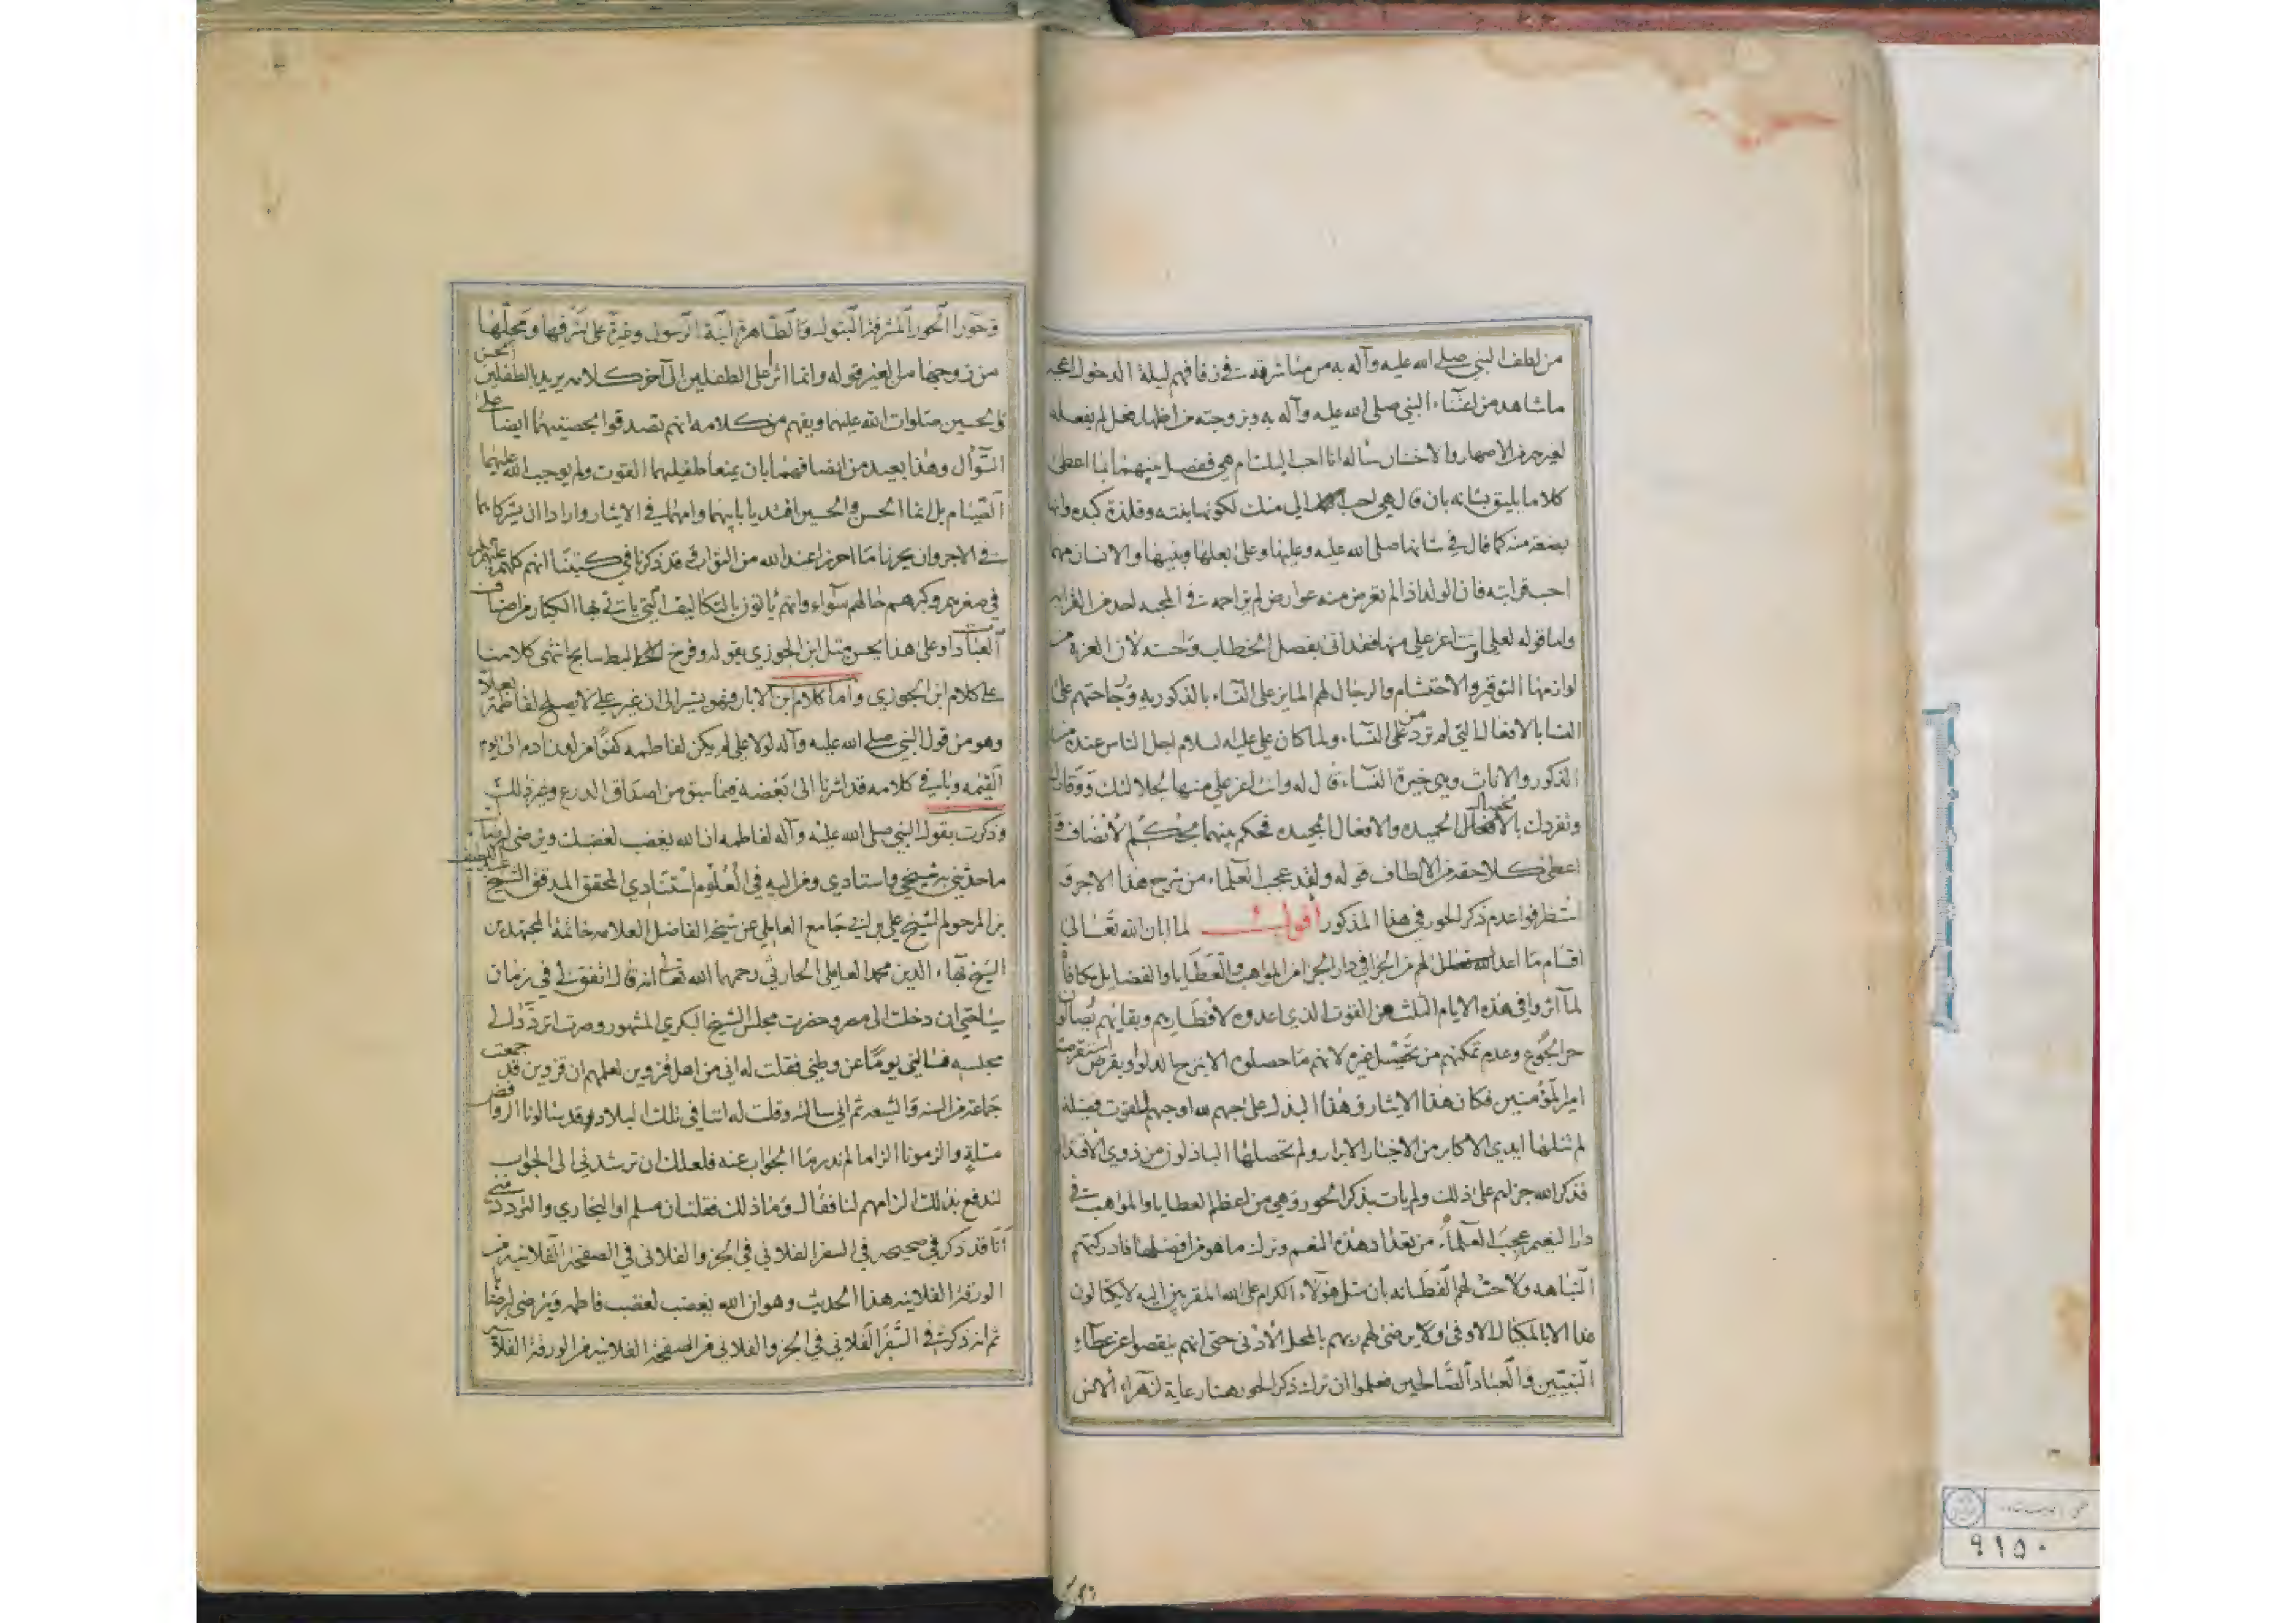 من لطف النبي صلى الله عليه وآله به من مباشرته في زفافهم ليلة الدخول اعجبه
ما شاهد من اعتناء النبي صلى الله عليه وآله به وبزوجته من اظهار فعل لم يفعله
لغيره من الاصهار والاختان سأله انا احب اليك ام هي ففصل بينهما بما اعطى
كلاما يليق بشانه بان قال هي احب الي منك لكونها بنته وفلذة كبده وانها
بضعة منه كما قال في شانها صلى الله عليه وعليها وعلى بعلها وبنيها والانسان مهما
احب قرابته فان الولد اذا لم تعرض منه عوارض لم يزاحمه في المحبة احد من القرابة
واما قوله لعلي وانت اعز علي منها فقد اتى بفصل الخطاب لان العزة من
لوازمها التوقير والاحتشام والرجال لهم المايز على النساء بالذكورية ورجاحتهم على
النسا بالافعال التي لم ترد من على النساء ولما كان علي عليه السلام اجل الناس عنده من
الذكور والاناث وهي خيرة النساء قال له وانت اعز علي منها اجلالا لك ووقارا
وتفردك بالخصال الحميده والافعال المجيده فحكم بينهما بحكم الانصاف و
اعطى كلا حقه من الالطاف قوله ولقد عجب العلماء من شرح هذا الاجر و
استظرفوا عدم ذكر الحور في هذا المذكور أقول لما ابان الله تعالى
اقسام ما اعد لهم من الجزا في دار الجزا من المواهب والعطايا والفضايل مكافاة
لما آثروا في هذه الايام الثلث من القوت الذي اعدوه لافطارهم وبقائهم يصالون
حر الجوع وعدم تمكنهم من تحصيل غيره لانهم ما حصلوه الا بنزح الدلو او بقرض استقرضه
امير المؤمنين فكان هذا الايثار وهذا البذل على حبهم لله او حبهم للقوت فضيلة
لم تنلها ايدي الاكابر من الاخيار الابرار ولم تحصلها الباذلون من ذوي الاقدار
فذكر الله جزاهم على ذلك ولم يات بذكر الحور وهي من اعظم العطايا والمواهب في
دار النعيم عجب العلماء من تعداد هذه النعم وترك ما هو من افضلها فادركتهم
النباهه ولاحت لهم الفطانه بان مثل هؤلاء الكرام على الله المقربين اليه لا يكتالون
غدا الا بالمكيال الاوفى ولا يرضى لهم ربهم بالمحل الادنى حتى انهم ينقصوا عن عطاء
النبيين والعباد الصالحين فعلموا ان ترك ذكر الحور هنا رعاية لزهراء الانس
وحوراء الحور المشرفة البتول والطاهرة ابنة الرسول وغيرة على شرفها ومحلها
من زوجها من الغير قوله وانما اثرا على الطفلين الى آخر كلامه يريد بالطفلين الحسن
والحسين صلوات الله عليهما ويفهم من كلامه انهم تصدقوا بحصتيهما ايضا على
السؤال وهذا بعيد من انصافهما بان يمنعا طفليهما القوت ولم يوجب الله عليهما
الصيام بل انما الحسن والحسين اقتديا بابيهما وامهما في الايثار وارادا ان يشركا بهما
في الاجر وان يحرزا ما احرزا عند الله من الثواب قد ذكرنا في كتبنا انهم كلهم
في صغرهم وكبرهم حالهم سواء وانهم ياتون بالتكاليف التي يات بها الكبار من اصناف
العباد وعلى هذا يحسن مثل ابن الجوزي بقوله وفرخ البط سابح انتهى كلامنا
على كلام ابن الجوزي واما كلام بن الابار وهو يشير الى ان غير علي لا يصلح لفاطمة بعلا
وهو من قول النبي صلى الله عليه وآله لولا علي لم يكن لفاطمه كفؤا من لدن ادم الى يوم
القيمه وباقي كلامه قد اشرنا الى بعضه فيما سبق من اصداق الدرع وغير ذلك
وذكرت بقول النبي صلى الله عليه وآله لفاطمه ان الله يغضب لغضبك ويرضى لرضاك
ما حدثني به شيخي واستادي ومن اليه في العلوم استنادي المحقق المدقق الشيخ عبد اللطيف
بن المرحوم الشيخ علي بن ابي جامع العاملي عن شيخه الفاضل العلامه خاتمة المجتهدين
الشيخ بهاء الدين محمد العاملي الحارثي رحمهما الله تعالى انه قال اتفق لي في زمان
سياحتي ان دخلت الى مصر وحضرت مجلس الشيخ البكري المشهور وصرت اتردد الى
مجلسه فسالني يوما عن وطني فقلت له اني من اهل قزوين لعلمهم ان قزوين قد جمعت
جماعة من السنه والشيعه ثم اني سالته وقلت له اننا في تلك البلاد وقد يسالونا الروافض
مسئلة والزمونا الزاما لم ندر ما الجواب عنه فلعلك ان ترشدني الى الجواب
لندفع بذلك الزامهم لنا فقال وما ذلك فقلت ان مسلم او البخاري والتردد مني
انا قد ذكر في صحيحه في السفر الفلاني في الجزو الفلاني في الصفحة الفلانيه من
الورقة الفلانيه هذا الحديث وهو ان الله يغضب لغضب فاطمه ويرضى لرضاها
ثم انه ذكر في السفر الفلاني في الجزو الفلاني من الصفحة الفلانيه من الورقة الفلا
٩١٥٠